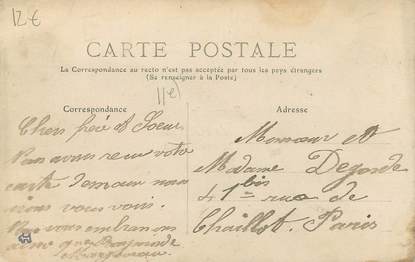 12€
CARTE POSTALE
La Correspondance au recto n'est pas acceptée par tous les pays étrangers
(Se renseigner à la Poste)
Correspondance
Adresse
Chers frère et Soeur
nous avons reçu votre
carte demain nous
irons vous voir.
vous embrassons
Monsieur et
Madame Degorde
41 bis rue de
Chaillot. Paris